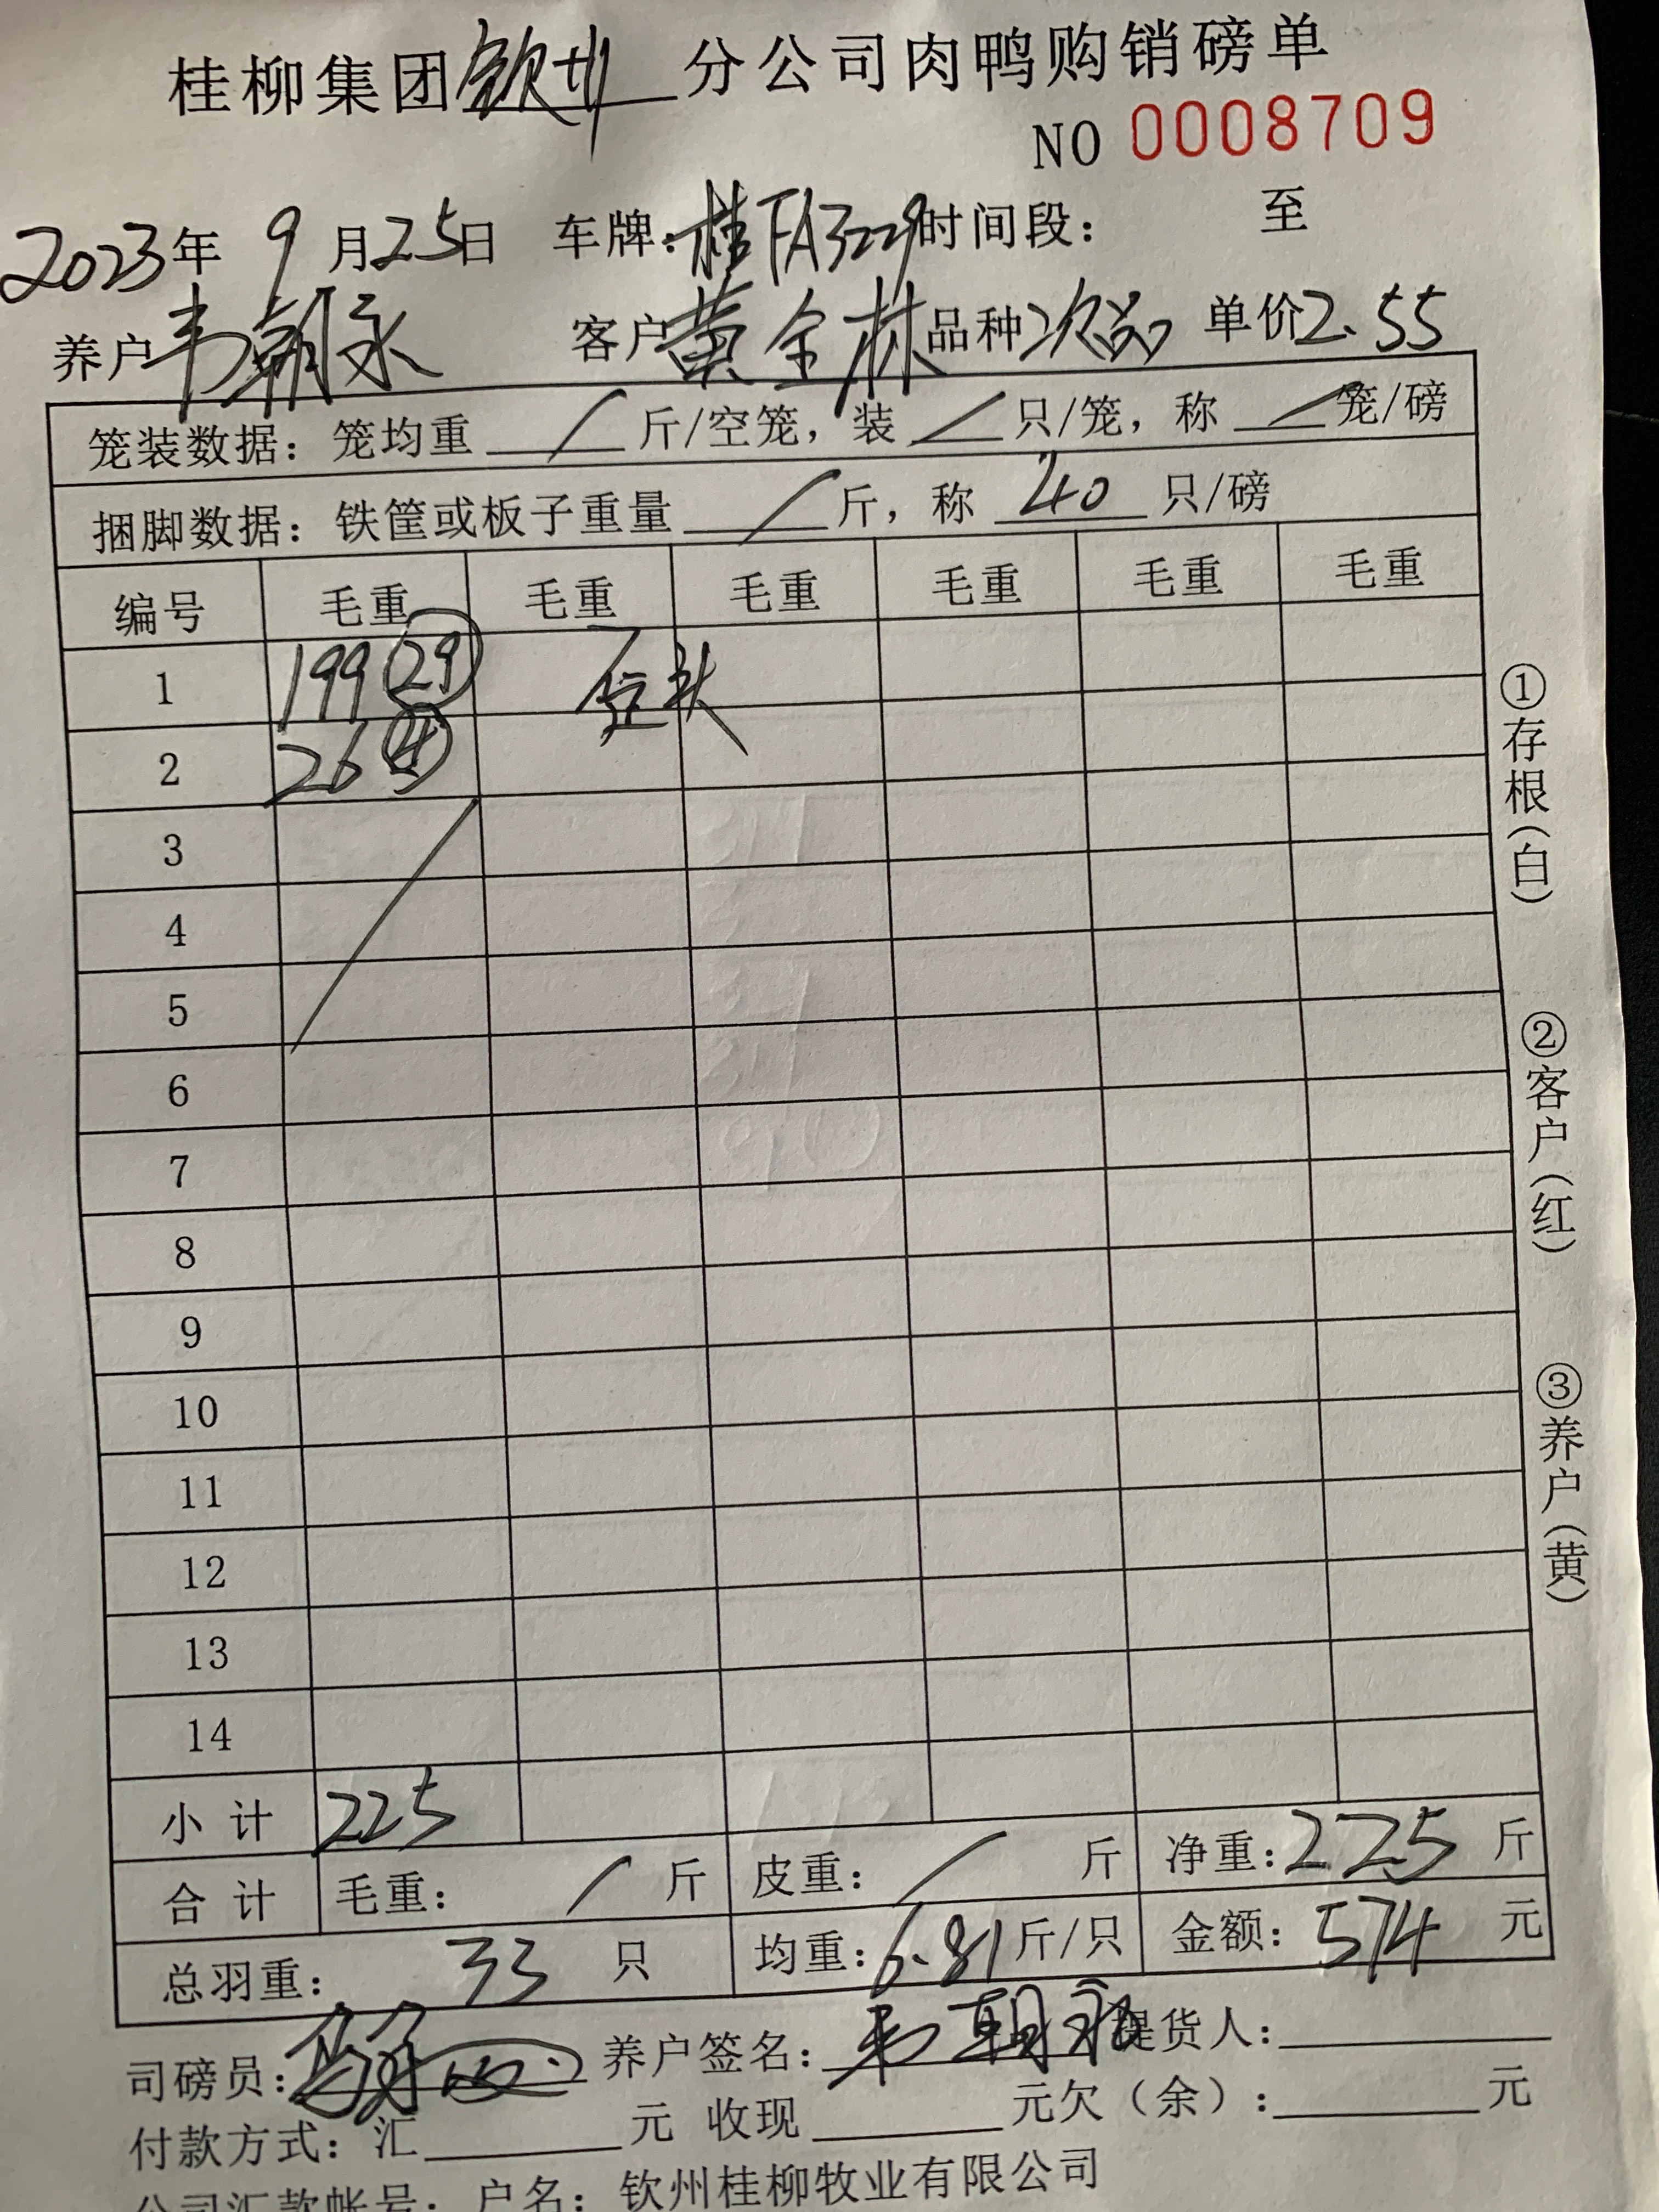 桂柳集团钦州分公司肉鸭购销磅单
NO 0008709
2023年 9月25日 车牌:桂FA3229时间段: 至
养户韦朝永 客户黄全林品种次品 单价2.55
笼装数据: 笼均重 / 斤/空笼, 装 / 只/笼, 称 / 笼/磅
捆脚数据: 铁筐或板子重量 / 斤, 称 40 只/磅
编号 毛重 毛重 毛重 毛重 毛重 毛重
1 199 29
2 26 4
3
4
5
6
7
8
9
10
11
12
13
14
小 计 225
合 计 毛重: / 斤 皮重: / 斤 净重:225 斤
总羽重: 33 只 均重:6.81斤/只 金额: 574 元
司磅员: 养户签名:韦朝永 提货人:
付款方式: 汇 元 收现 元欠(余): 元
公司汇款帐号: 户名: 钦州桂柳牧业有限公司
①存根(白)
②客户(红)
③养户(黄)